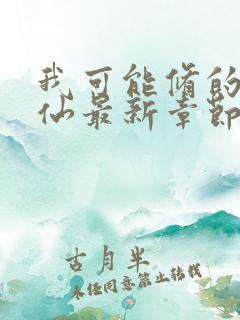 我可能修的
仙最新章节
古月半
未经同意禁止转载